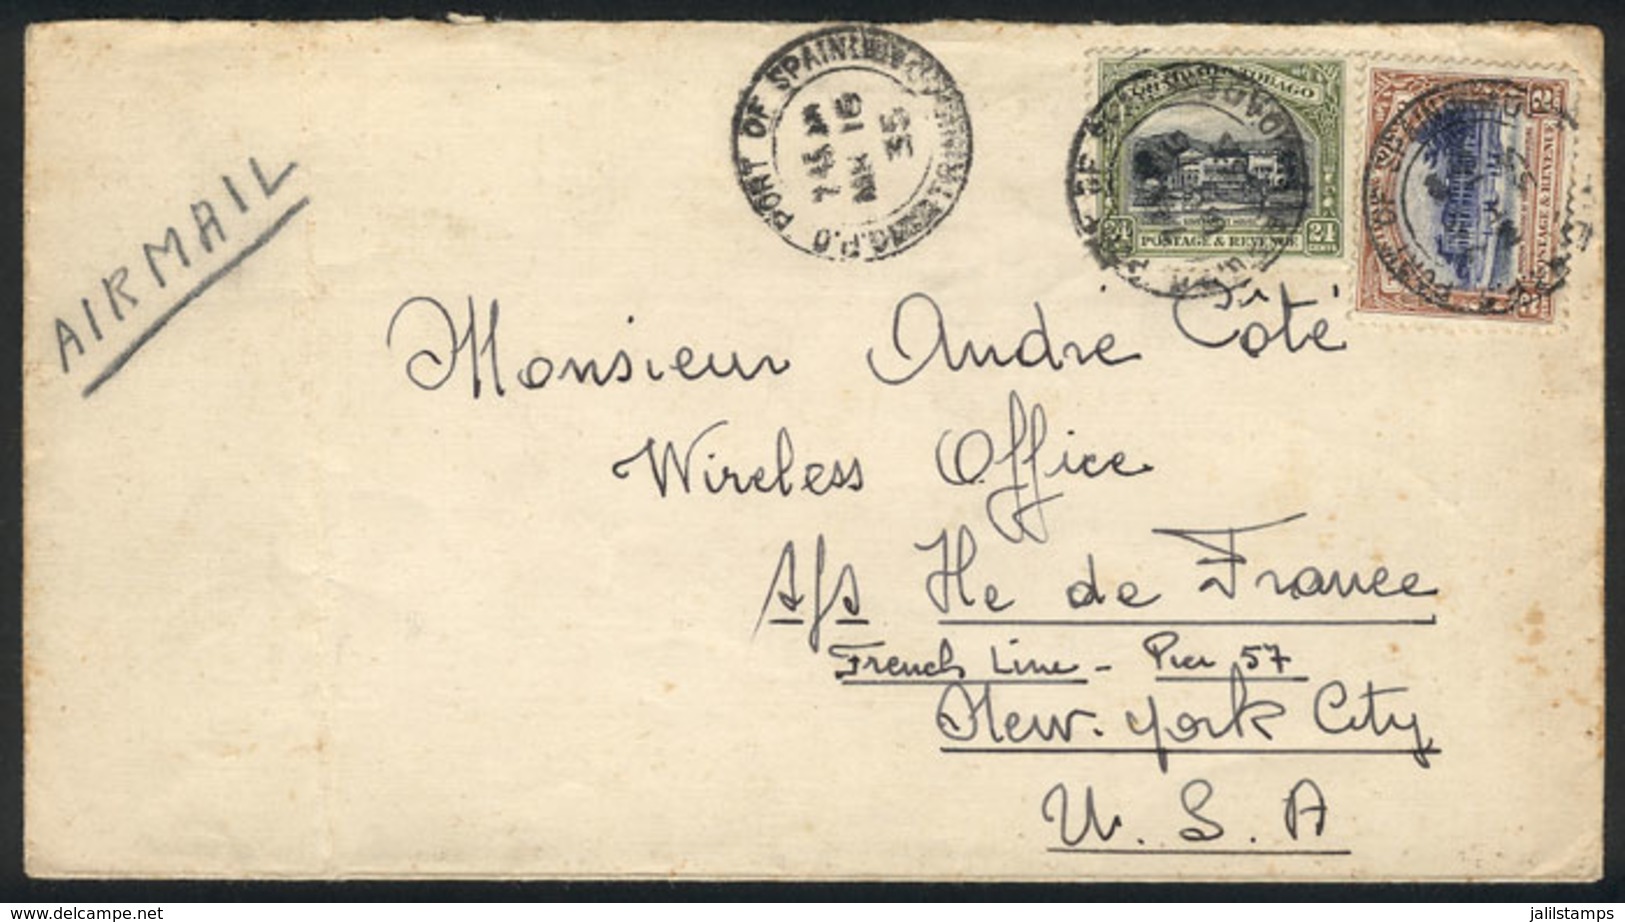 PORT OF SPAIN
G.P.O
7 45 AM
16
35
TOBAGO
24 24
POSTAGE & REVENUE
POSTAGE & REVENUE
AIRMAIL
Monsieur André Côté
Wireless Office
s/s Ile de France
French Line - Pier 57
New-York City
U. S. A
www.delcampe.net
jalilstamps